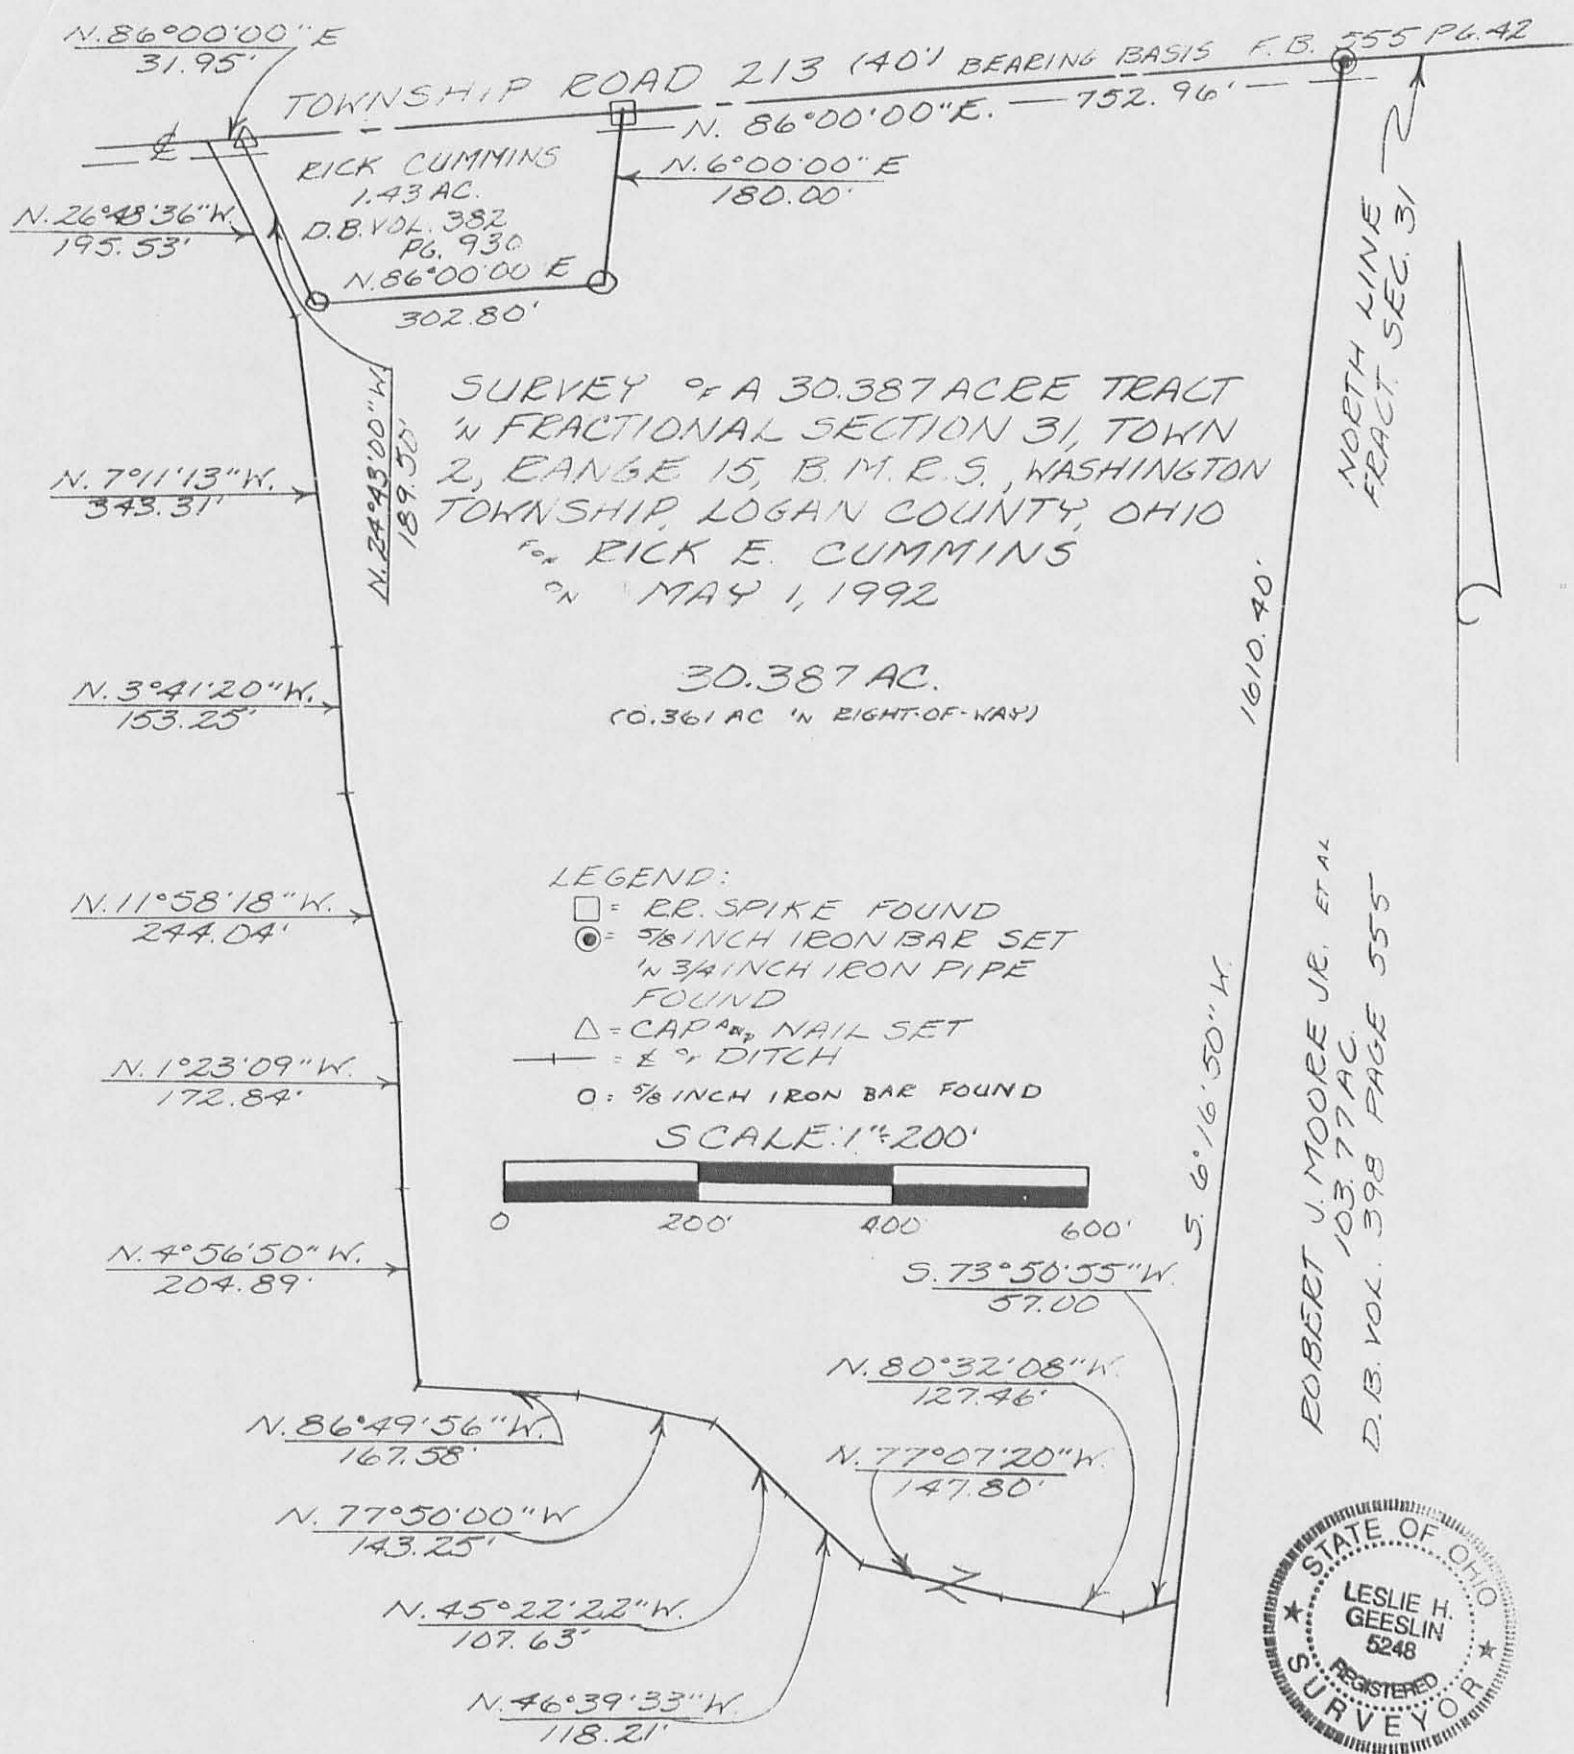 N. 86°00'00" E
31.95'
TOWNSHIP ROAD 213 (40') BEARING BASIS F.B. 555 PG. 42
N. 86°00'00" E. 752.96'
℄
RICK CUMMINS
1.43 AC.
D.B. VOL. 382
PG. 930
N. 6°00'00" E
180.00'
N. 26°48'36" W.
195.53'
N. 86°00'00 E
302.80'
N. 24°43'00" W
189.50'
NORTH LINE
FRACT. SEC. 31
SURVEY OF A 30.387 ACRE TRACT
IN FRACTIONAL SECTION 31, TOWN
2, RANGE 15, B.M.R.S., WASHINGTON
TOWNSHIP, LOGAN COUNTY, OHIO
FOR RICK E. CUMMINS
ON MAY 1, 1992
N. 7°11'13" W.
343.31'
30.387 AC.
(0.361 AC IN RIGHT-OF-WAY)
N. 3°41'20" W.
153.25'
1610.40'
S. 6°16'50" W.
N. 11°58'18" W.
244.04'
LEGEND:
□ = R.R. SPIKE FOUND
◉ = 5/8 INCH IRON BAR SET
IN 3/4 INCH IRON PIPE
FOUND
△ = CAP AND NAIL SET
= ℄ OF DITCH
O = 5/8 INCH IRON BAR FOUND
N. 1°23'09" W.
172.84'
SCALE: 1" = 200'
0 200' 400' 600'
ROBERT J. MOORE JR. ET AL
103.77 AC.
D.B. VOL. 398 PAGE 555
N. 4°56'50" W.
204.89'
S. 73°50'55" W.
57.00
N. 80°32'08" W.
127.46'
N. 86°49'56" W.
167.58'
N. 77°07'20" W.
147.80'
N. 77°50'00" W
143.25'
N. 45°22'22" W.
107.63'
N. 46°39'33" W.
118.21'
STATE OF OHIO
LESLIE H.
GEESLIN
5248
REGISTERED
SURVEYOR